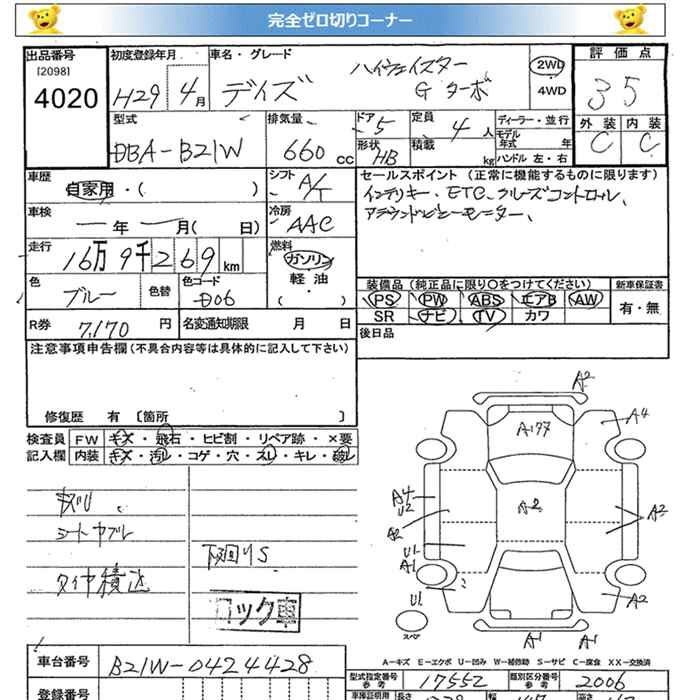 完全ゼロ切りコーナー
出品番号 初度登録年月 車名・グレード 評価点
[2098]
4020
H29 4月 デイズ ハイウェイスター Gターボ 2WD 4WD 35
外装 内装
C C
型式 排気量 ドア 定員 ディーラー・並行
DBA-B21W 660cc 5 4人
モデル年式 年
形状 積載 ハンドル 左・右
HB kg
車歴 シフト セールスポイント (正常に機能するものに限ります)
自家用・( ) A/T
インテリキー、ETC、クルーズコントロール、
アラウンドビューモニター、
車検 冷房
年 月( 日) AAC
走行 燃料
16万9千269km ガソリン
軽油
( )
色 色替 色コード
ブルー D06
装備品 (純正品に限り○をつけてください) 新車保証書
PS PW ABS エアB AW 有・無
SR ナビ TV カワ
R券 7,170円 名変通知期限 月 日
後日品
注意事項申告欄(不具合内容等は具体的に記入して下さい)
修復歴 有 〔箇所 〕
検査員 FW キズ・飛石・ヒビ割・リペア跡・×要
記入欄 内装 キズ・汚レ・コゲ・穴・スレ・キレ・破レ
シートヤブレ
下廻りS
タイヤ積込
ロック車
A2
A4
A177
A2
A4
U2
A2
A2
U1
A1
U1
A2
スペア
A1 A1
A-キズ E-エクボ U-凹み W-補修跡 S-サビ C-腐食 XX-交換済
車台番号 B21W-0424428
型式指定番号 参考 17552 類別区分番号 参考 2006
登録番号